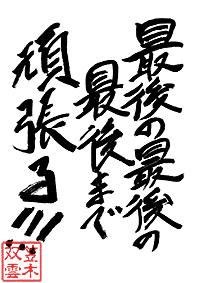 最後の最後の
最後まで
頑張る!!!
笠木
双雲